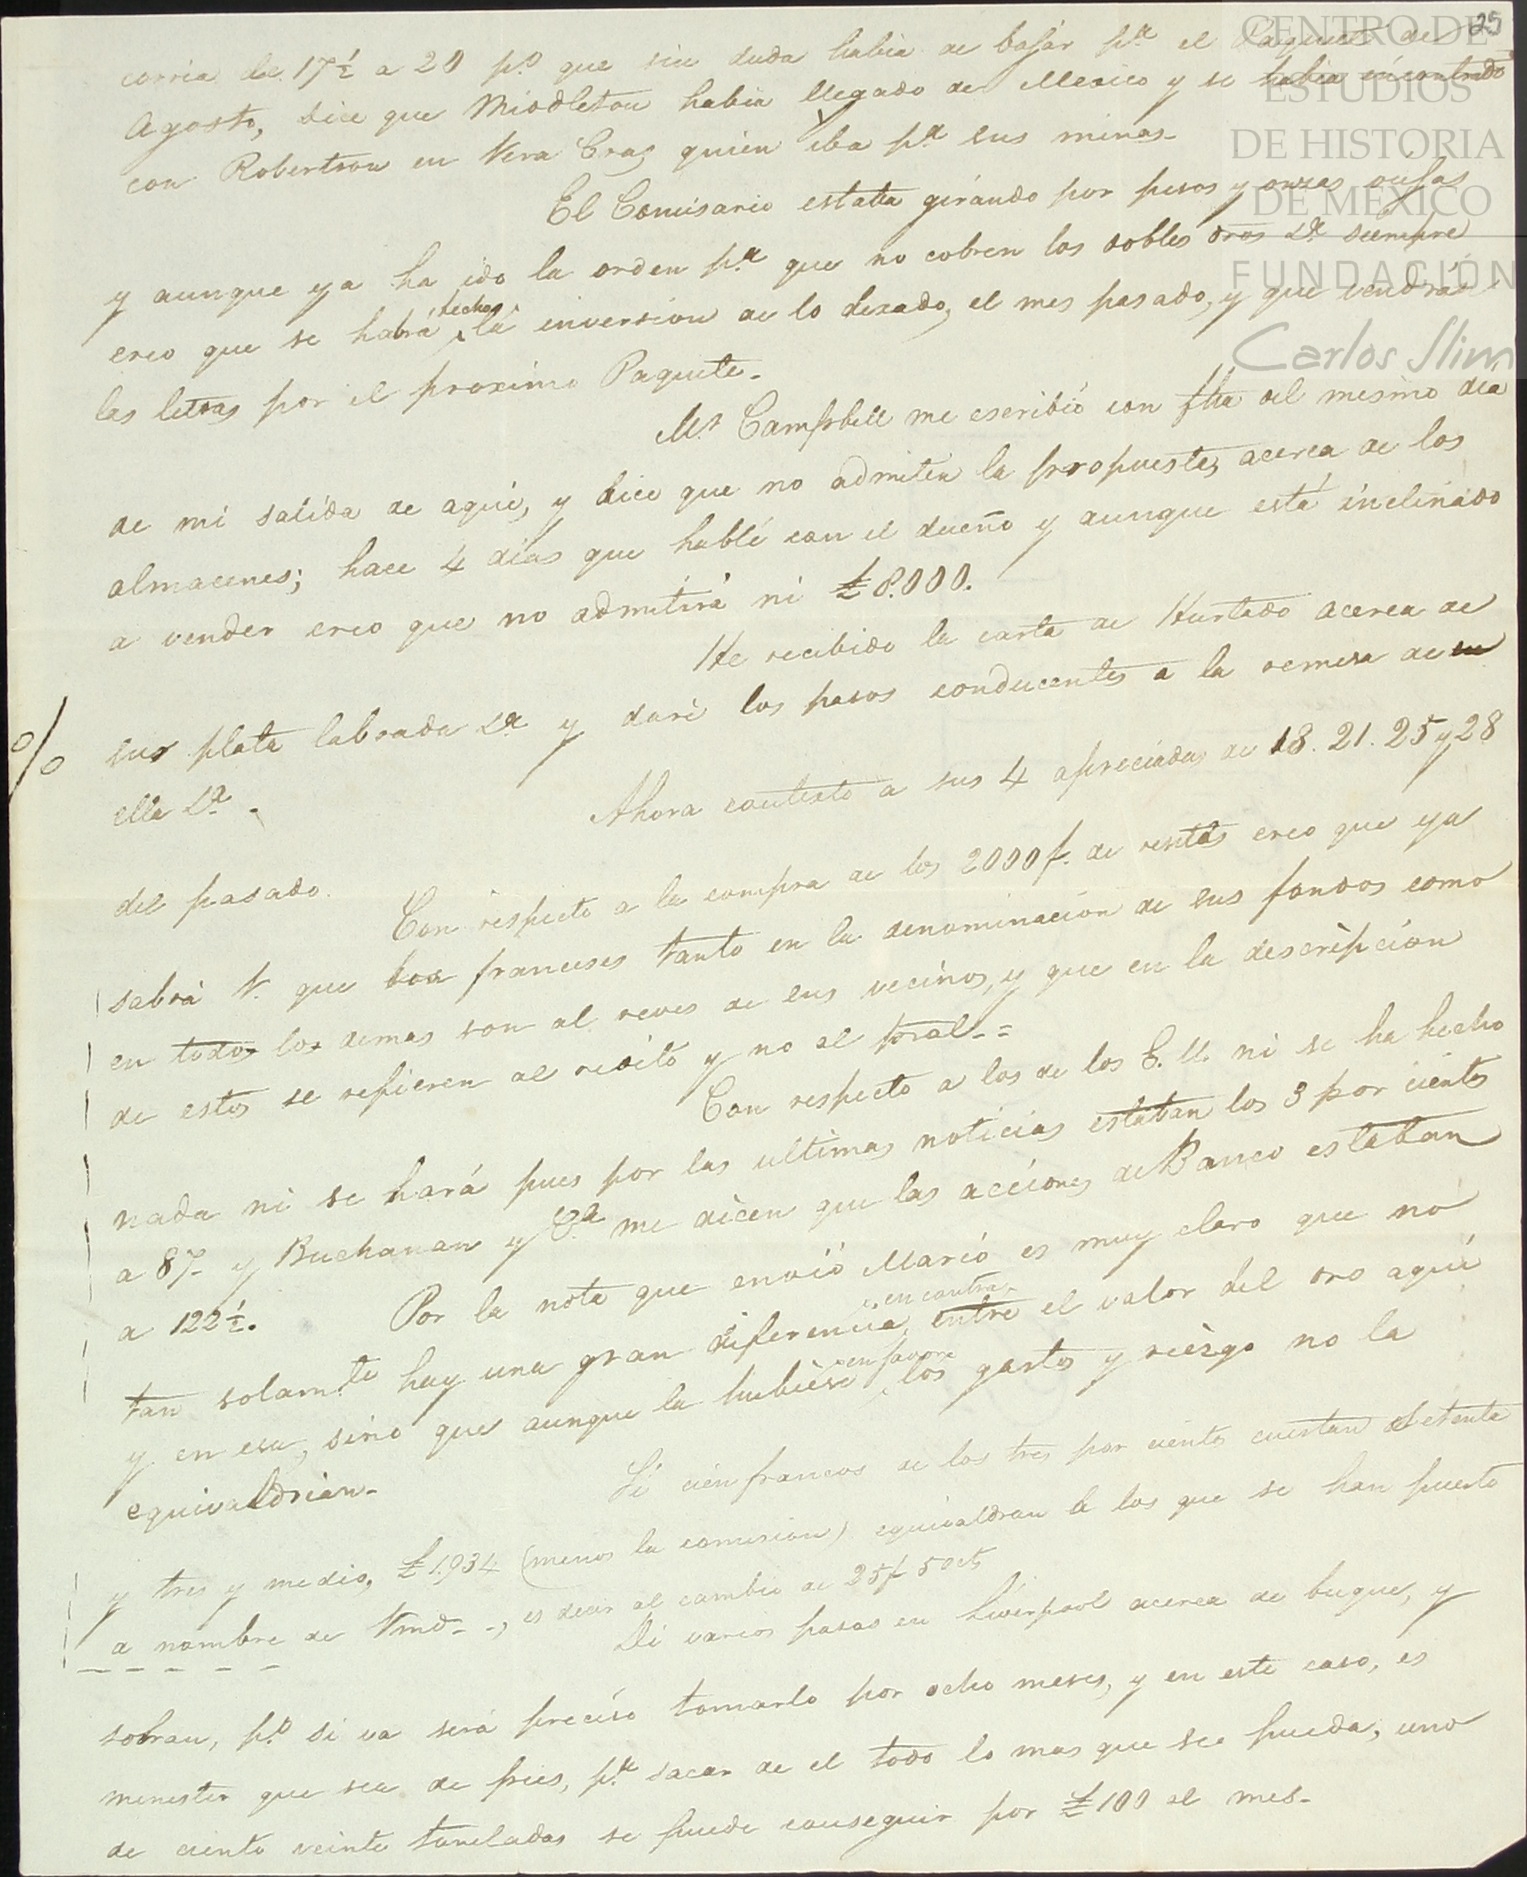 25
corria de 17½ a 20 p.o que sin duda habia de bajár p.a el Paquete de
Agosto, dice que Middleton habia llegado de Mexico y se habia encontrado
con Robertson en Vera Cruz quien iba p.a sus minas-
El Comisario estaba girando por pesos y onzas
y aunque ya ha ido la orden p.a que no cobren los dobles oros &.a siempre
creo que se habrá hecho la inversion de lo dexado, el mes pasado, y que vendrán
las letras por el proximo Paquete-
Mr Campbell me escribió con fha del mismo dia
de mi salida de aqui, y dice que no admiten la propuesta, acerca de los
almacenes; hace 4 dias que hablé con el dueño y aunque está inclinado
a vender creo que no admitirá ni £8.000.
He recibido la carta de Hurtado acerca de
sus plata labrada &.a y daré los pasos conducentes a la remesa de
ella &.a -
Ahora contesto a sus 4 apreciadas de 18. 21. 25 y 28
del pasado.
Con respecto a la compra de los 2000f. de rentas creo que ya
sabrá V. que los franceses tanto en la denominacion de sus fondos como
en todo lo demas son al reves de sus vecinos, y que en la descripcion
de estos se refieren al redito y no al pral-=
Con respecto a los de los E. U. ni se ha hecho
nada ni se hará pues por las ultimas noticias estaban los 3 por ciento
a 87- y Buchanan y C.a me dicen que las acciones de Banco estaban
a 122½.
Por la nota que envió Marió es muy claro que no
tan solam.te hay una gran diferencia en contra entre el valor del oro aqui
y en esa, sino que aunque la hubiese en favor los gastos y riesgo no la
equivaldrian-
Si cien francos de los tres por ciento cuestan setenta
y tres y medio, £1.934 (menos la comision) equivaldran a los que se han puesto
a nombre de Vmd--, es decir al cambio de 25f 50cts
Di varios pasos en Liverpool acerca de buque, y
sobran, p.o si va será preciso tomarlo por ocho meses, y en este caso, es
menester que sea de pries, p.a sacar de el todo lo mas que se pueda, uno
de ciento veinte toneladas se puede conseguir por £100 al mes-
CENTRO DE
ESTUDIOS
DE HISTORIA
DE MÉXICO
FUNDACIÓN
Carlos Slim